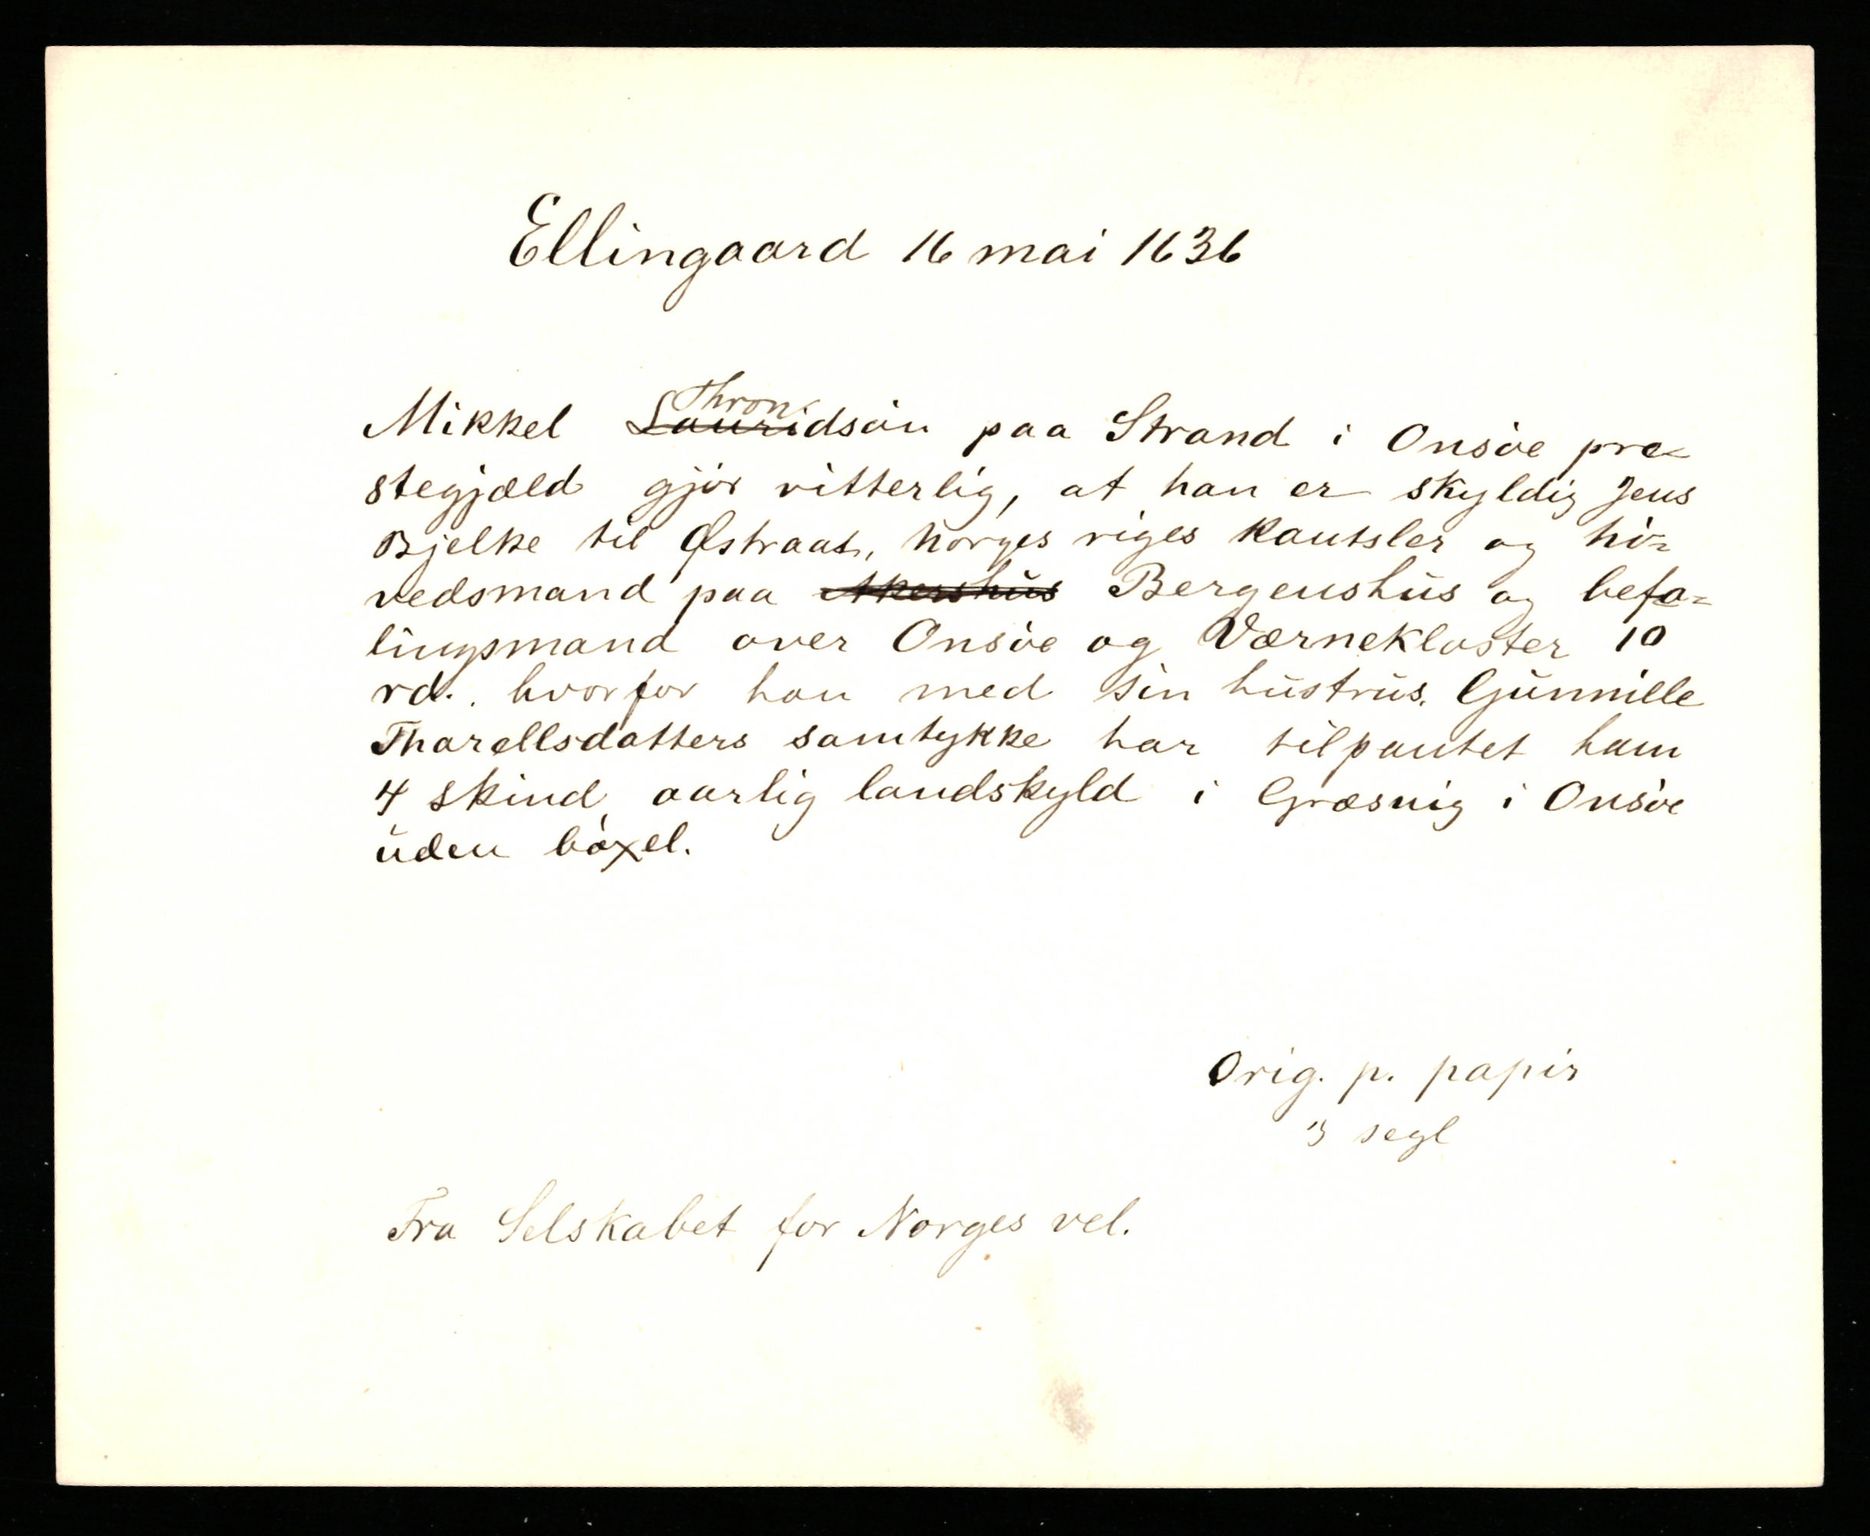 Ellingaard 16 mai 1636
Mikkel Throndsøn paa Strand i Onsøe præ-
stegjæld gjør vitterlig, at han er skyldig Jens
Bjelke til Østraat, Norges riges kantsler og hö-
vedsmand paa Akershus Bergenshus og befa-
lingsmand over Onsøe og Værnekloster 10
rd., hvorfor han med sin hustrus Gunnille
Tharellsdatters samtykke har tilpantet ham
4 skind aarlig landskyld i Græsnig i Onsøe
uden bøxel.
Orig. p. papir
3 segl
Fra Selskabet for Norges vel.